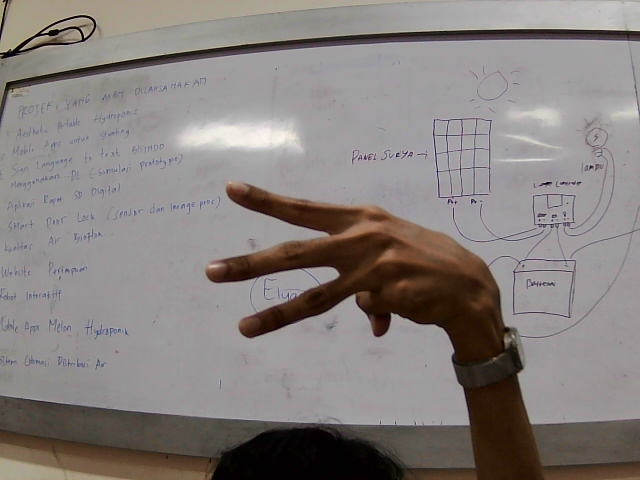 PROJEK YANG AKAN DILAKSANAKAN
Aesthetic Portable Hydroponic
Mobile Apps untuk stunting
Sign Language to text BISINDO
Menggunakan DL (Simulasi prototype)
Aplikasi Rapor SD Digital
Smart Door Lock (sensor dan image proc)
Kualitas Air
Website
Robot Interaktif
Mobile Apps Melon Hydroponik
Sistem Otomasi Distribusi Air
Elya
PANEL SURYA →
P+
P-
LAMPU
Baterai